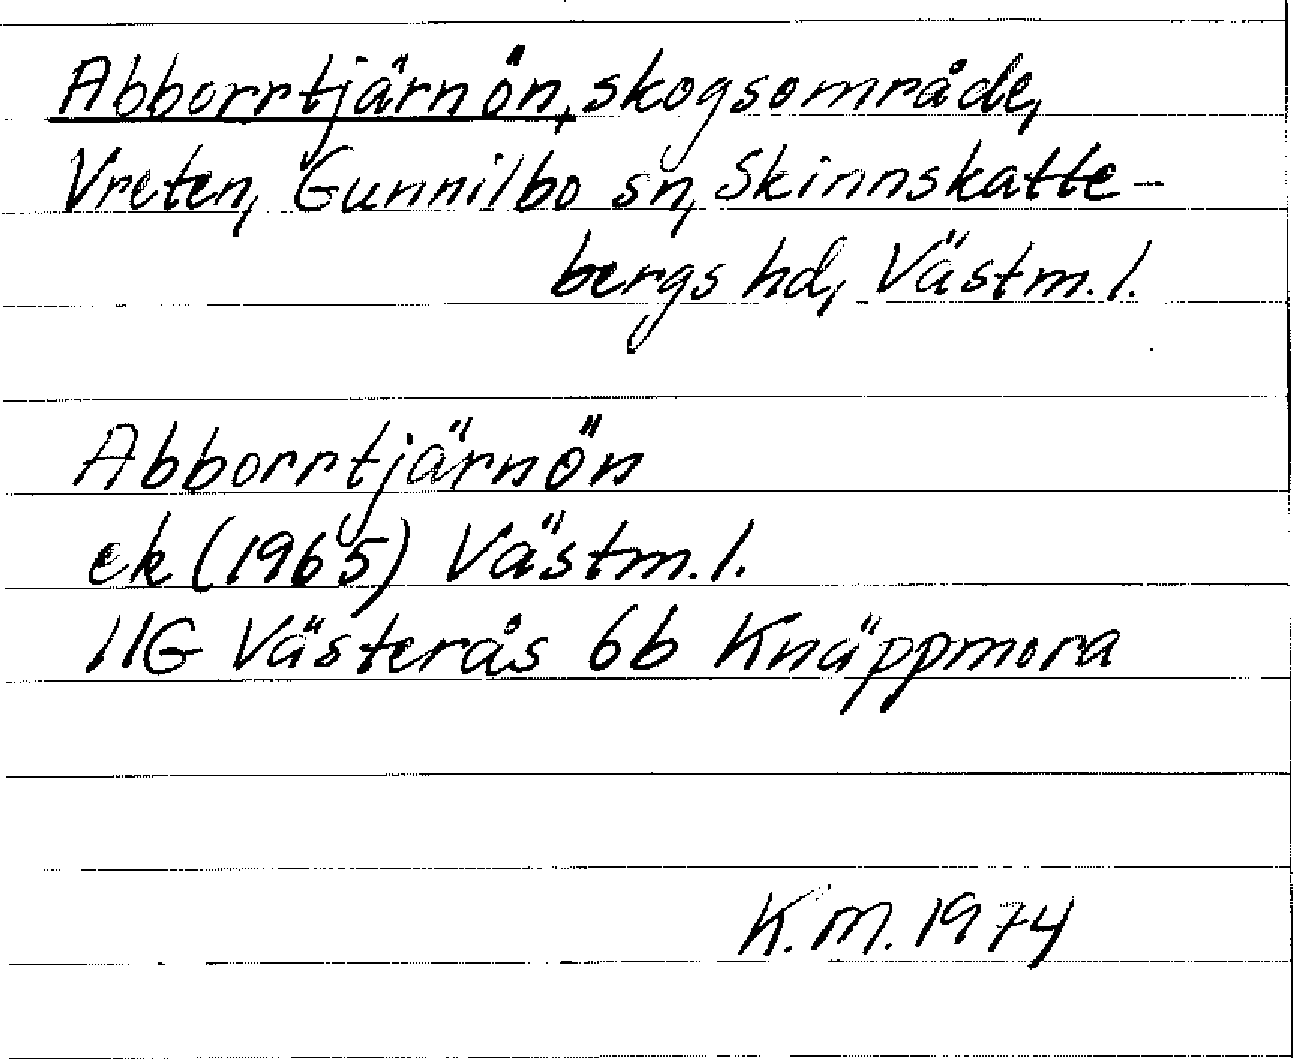 Abborrtjärnön, skogsområde,
Vreten, Gunnilbo sn, Skinnskatte-
bergs hd, Västm. l.
Abborrtjärnön
ek (1965) Västm. l.
11G Västerås 6b Knäppmora
K.M. 1974